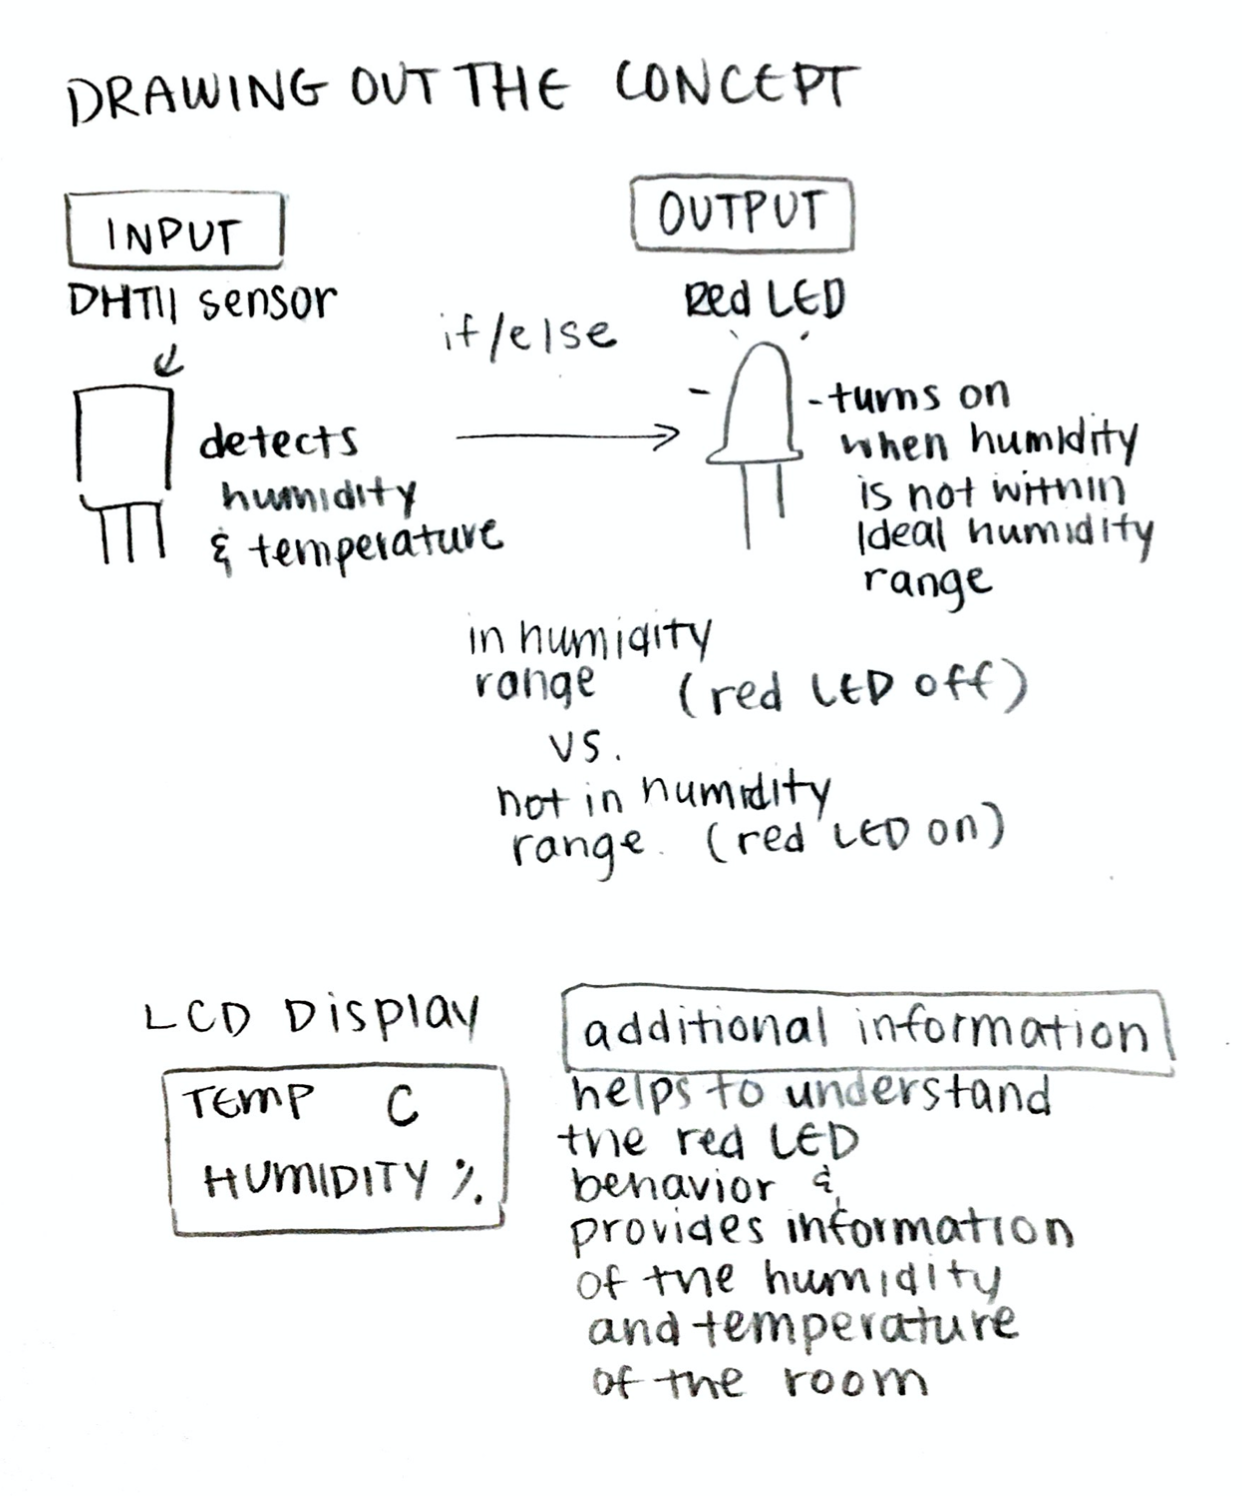 DRAWING OUT THE CONCEPT
INPUT
DHT11 sensor
detects
humidity
& temperature
if/else
OUTPUT
Red LED
- turns on
when humidity
is not within
Ideal humidity
range
in humidity
range (red LED off)
vs.
not in humidity
range. (red LED on)
LCD Display
TEMP C
HUMIDITY %
additional information
helps to understand
the red LED
behavior &
provides information
of the humidity
and temperature
of the room